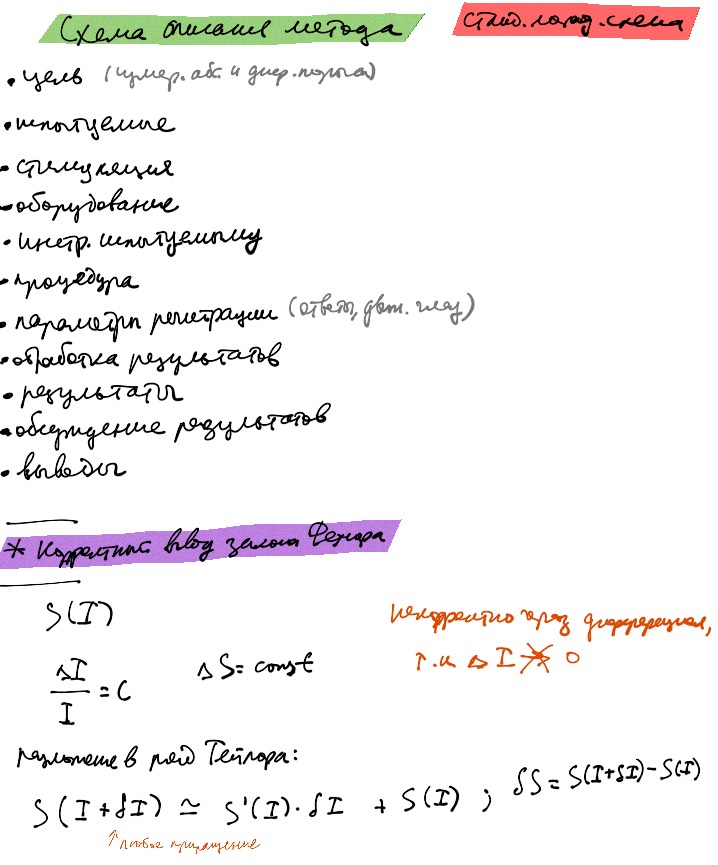 Схема описания метода
станд. порог. схема
• цель (измер. абс. и диф. порога)
• испытуемые
• стимуляция
• оборудование
• инстр. испытуемому
• процедура
• параметры регистрации (ответы, движ. глаз)
• обработка результатов
• результаты
• обсуждение результатов
• выводы
* Корректный вывод закона Фехнера
S(I)
некорректно через дифференциал,
т.к. ΔI ↛ 0
ΔI/I = C ΔS = const
разложение в ряд Тейлора:
S(I+δI) ≃ S'(I)·δI + S(I) ; δS = S(I+δI) - S(I)
↑ любое приращение